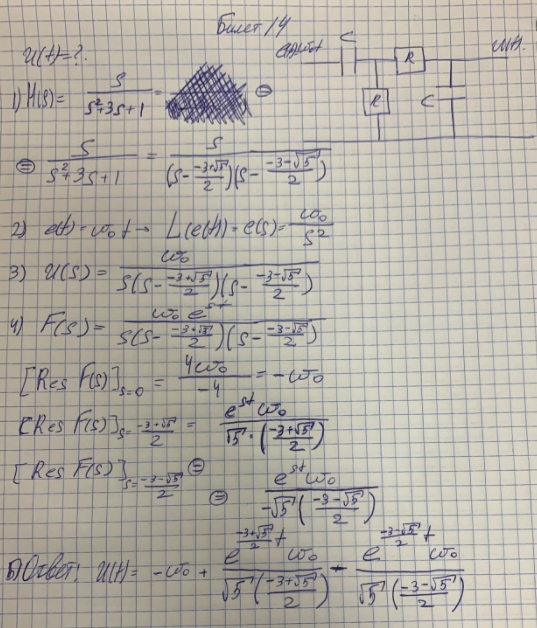 Билет 14
U(t)=?
ω₀t C R U(t)
R C
1) H(s) = s/(s²+3s+1) = ⊜
⊜ s/(s²+3s+1) = s/((s - (-3+√5)/2)(s - (-3-√5)/2))
2) e(t) = ω₀t → L(e(t)) = e(s) = ω₀/s²
3) U(s) = ω₀/(s(s - (-3+√5)/2)(s - (-3-√5)/2))
4) F(s) = ω₀e^(st)/(s(s - (-3+√5)/2)(s - (-3-√5)/2))
[Res F(s)]_(s=0) = 4ω₀/-4 = -ω₀
[Res F(s)]_(s=(-3+√5)/2) = e^(st)ω₀/(√5·((-3+√5)/2))
[Res F(s)]_(s=(-3-√5)/2) ⊜
⊜ e^(st)ω₀/(-√5((-3-√5)/2))
5) Ответ: U(t) = -ω₀ + e^((-3+√5)/2 t)ω₀/(√5((-3+√5)/2)) - e^((-3-√5)/2 t)ω₀/(√5((-3-√5)/2))